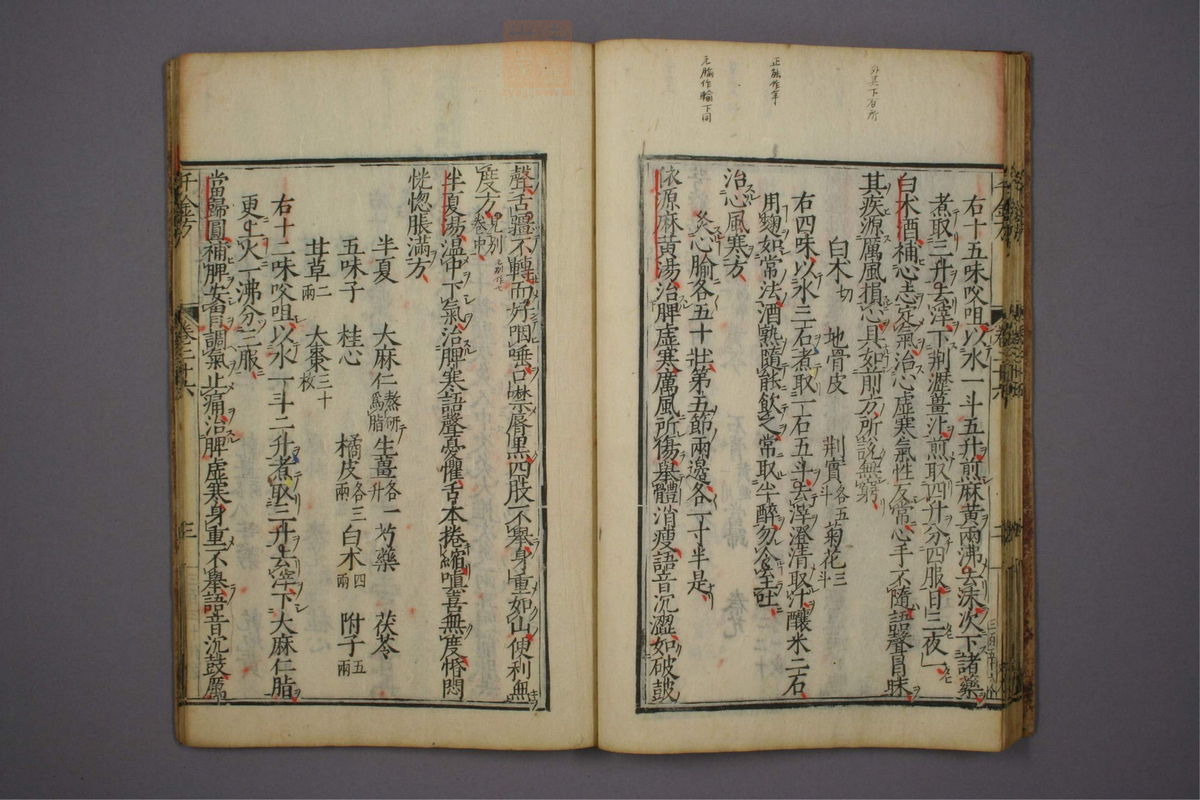 外其下有所
正融作年
元腧作輸下同
右十五味㕮咀以水一斗五升煎麻黃兩沸去沫次下諸藥
煮取三升去滓下荆瀝薑汁煎取四升分四服日三夜一
白朮酒補心志定氣治心虛寒氣性反常心手不隨語聲冒昧
其疾源厲風損心具如前方所說無窮
白朮切 地骨皮 荆實各五斗 菊花三斗
右四味以水三石煮取一石五斗去滓澄清取汁釀米二石
用麴如常法酒熟隨能飲之常取半醉勿令至吐
治心風寒方
灸心腧各五十壯第五節兩邊各一寸半是
依源麻黃湯治脾虛寒厲風所傷舉體消瘦語音沉澀如破鼓
聲舌彊不轉而好咽唾口噤脣黑四肢不舉身重如山便利無
度方見別卷中
半夏湯溫中下氣治脾寒語聲憂懼舌本捲縮嗔喜無度惛悶
恍惚脹滿方
半夏 大麻仁熬研為脂 生薑各一升 芍藥 茯苓
五味子 桂心 橘皮各三兩 白朮四兩 附子五兩
甘草二兩 大棗三十枚
右十二味㕮咀以水一斗二升煮取三升去滓下大麻仁脂
更上火一沸分三服
當歸圓補脾安胃調氣止痛治脾虛寒身重不舉語音沉鼓厲
千金方
卷二十六
三